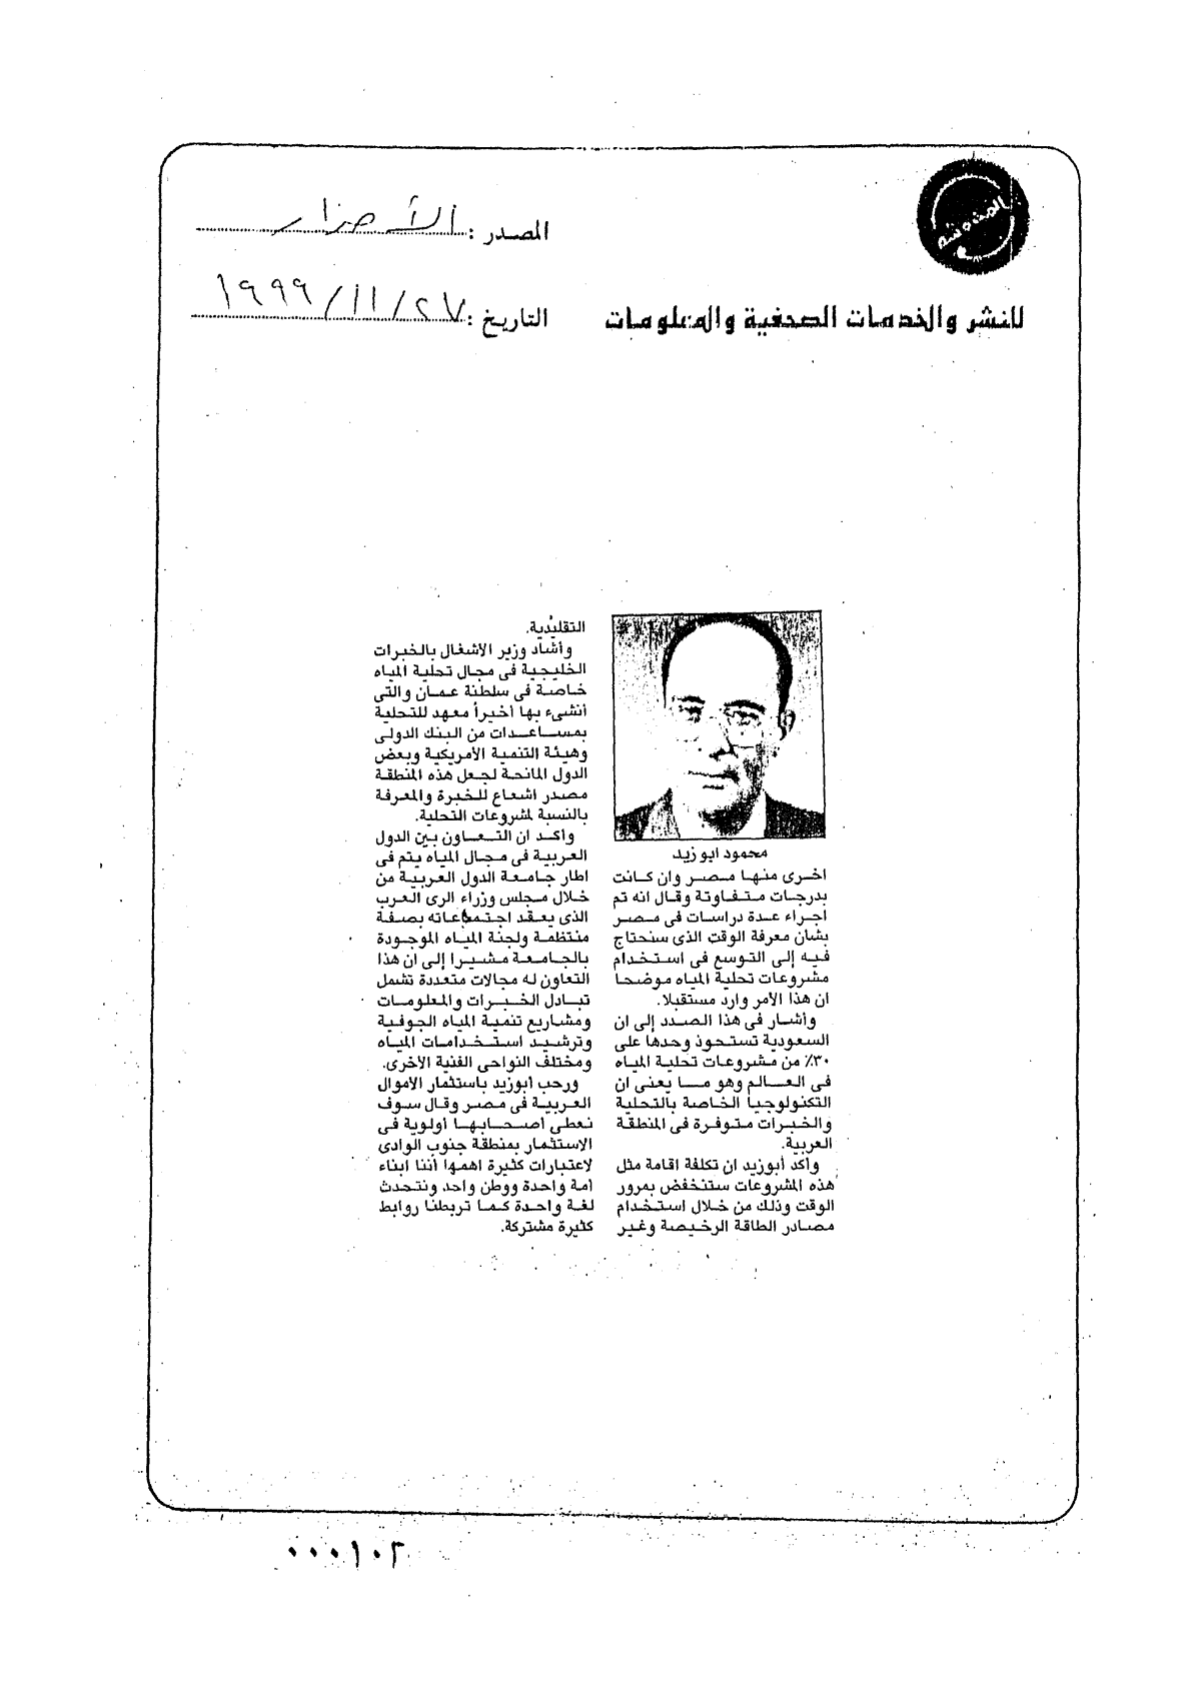 المصدر : الأحرار
التاريخ : ٢٧/١١/١٩٩٩
للنشر والخدمات الصحفية والمعلومات
محمود ابو زيد
اخرى منها مصر وان كانت
بدرجات متفاوتة وقال انه تم
اجراء عدة دراسات فى مصر
بشان معرفة الوقت الذى سنحتاج
فيه إلى التوسع فى استخدام
مشروعات تحلية المياه موضحا
ان هذا الأمر وارد مستقبلا.
وأشار فى هذا الصدد إلى ان
السعودية تستحوذ وحدها على
٣٠٪ من مشروعات تحلية المياه
فى العالم وهو ما يعنى ان
التكنولوجيا الخاصة بالتحلية
والخبرات متوفرة فى المنطقة
العربية.
وأكد أبوزيد ان تكلفة اقامة مثل
هذه المشروعات ستنخفض بمرور
الوقت وذلك من خلال استخدام
مصادر الطاقة الرخيصة وغير
التقليدية.
وأشاد وزير الاشغال بالخبرات
الخليجية فى مجال تحلية المياه
خاصة فى سلطنة عمان والتى
أنشىء بها اخيرأ معهد للتحلية
بمساعدات من البنك الدولى
وهيئة التنمية الأمريكية وبعض
الدول المانحة لجعل هذه المنطقة
مصدر اشعاع للخبرة والمعرفة
بالنسبة لمشروعات التحلية.
واكد ان التعاون بين الدول
العربية فى مجال المياه يتم فى
اطار جامعة الدول العربية من
خلال مجلس وزراء الرى العرب
الذى يعقد اجتماعاته بصفة
منتظمة ولجنة المياه الموجودة
بالجامعة مشيرا إلى ان هذا
التعاون له مجالات متعددة تشمل
تبادل الخبرات والمعلومات
ومشاريع تنمية المياه الجوفية
وترشيد استخدامات المياه
ومختلف النواحى الفنية الأخرى.
ورحب أبوزيد باستثمار الأموال
العربية فى مصر وقال سوف
نعطى اصحابها أولوية فى
الاستثمار بمنطقة جنوب الوادى
لاعتبارات كثيرة اهمها أننا ابناء
أمة واحدة ووطن واحد ونتحدث
لغة واحدة كما تربطنا روابط
كثيرة مشتركة.
٠٠٠١٠٢